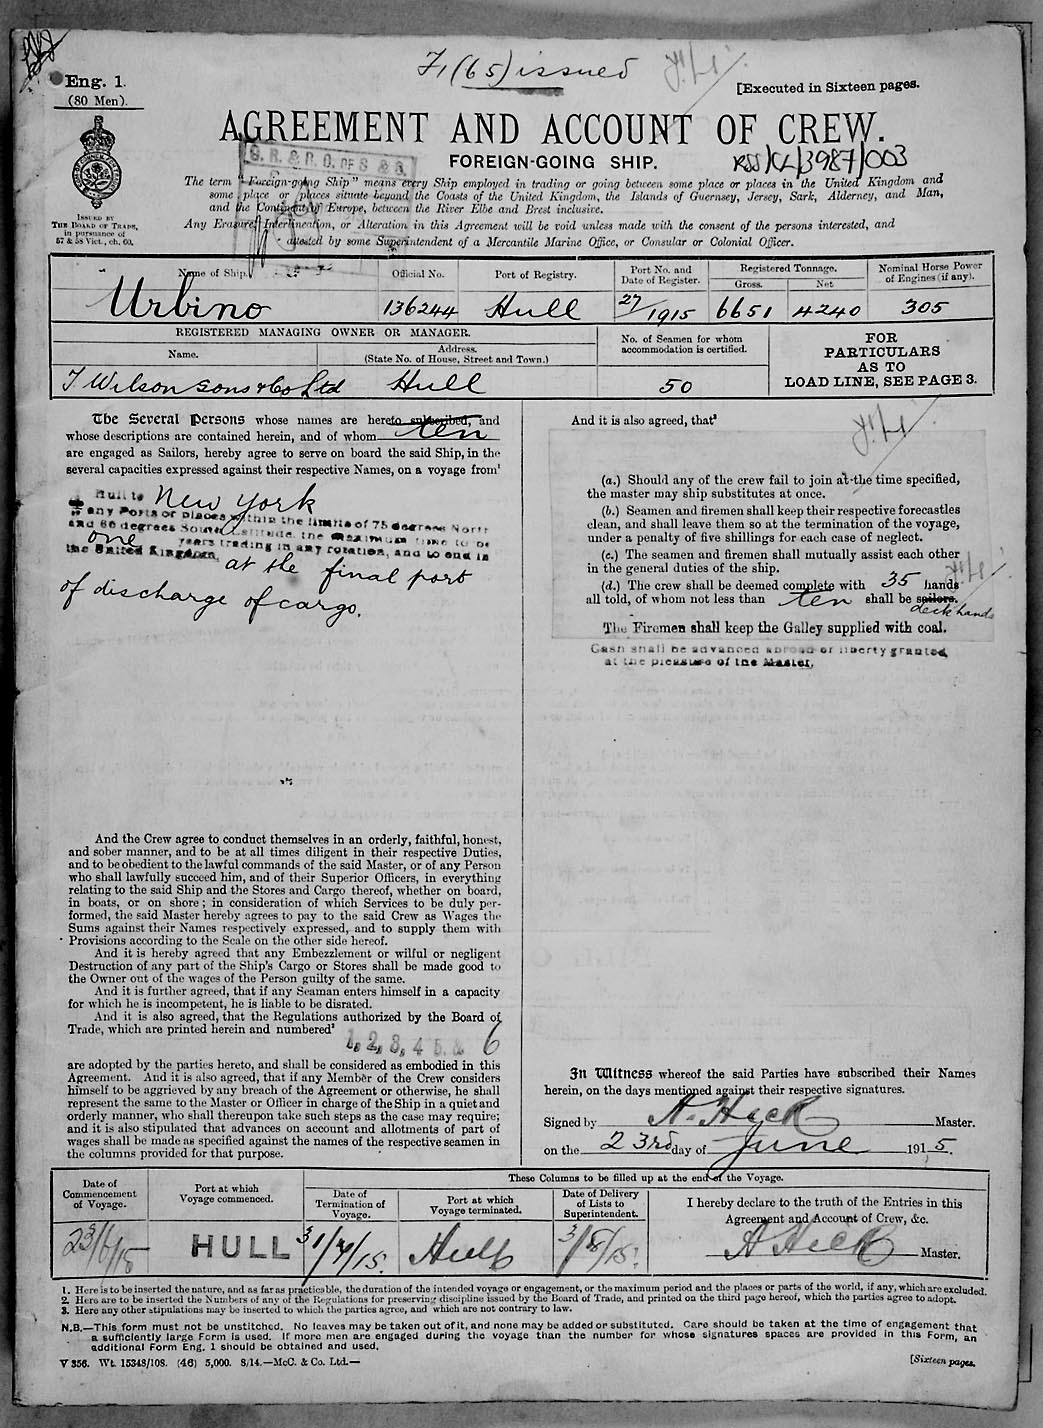 F1(65) issued
Eng. 1.
(80 Men).
[Executed in Sixteen pages.
AGREEMENT AND ACCOUNT OF CREW.
FOREIGN-GOING SHIP.
RSS/CL/3987/003
ISSUED BY
THE BOARD OF TRADE,
in pursuance of
57 & 58 Vict., ch. 60.
The term "Foreign-going Ship" means every Ship employed in trading or going between some place or places in the United Kingdom and
some place or places situate beyond the Coasts of the United Kingdom, the Islands of Guernsey, Jersey, Sark, Alderney, and Man,
and the Continent of Europe, between the River Elbe and Brest inclusive.
Any Erasure, Interlineation, or Alteration in this Agreement will be void unless made with the consent of the persons interested, and
attested by some Superintendent of a Mercantile Marine Office, or Consular or Colonial Officer.
Name of Ship. Official No. Port of Registry. Port No. and Date of Register. Registered Tonnage. Gross. Net Nominal Horse Power of Engines (if any).
Urbino 136244 Hull 27/1915 6651 4240 305
REGISTERED MANAGING OWNER OR MANAGER.
Name. Address. (State No. of House, Street and Town.)
No. of Seamen for whom accommodation is certified.
FOR
PARTICULARS
AS TO
LOAD LINE, SEE PAGE 3.
T Wilson Sons & Co Ltd Hull 50
The Several Persons whose names are hereto subscribed, and
whose descriptions are contained herein, and of whom ten
are engaged as Sailors, hereby agree to serve on board the said Ship, in the
several capacities expressed against their respective Names, on a voyage from¹
Hull to New York
any Ports or places within the limits of 75 degrees North
and 60 degrees South Latitude, the maximum time to be
one years trading in any rotation, and to end in
the United Kingdom, at the final port
of discharge of cargo.
And the Crew agree to conduct themselves in an orderly, faithful, honest,
and sober manner, and to be at all times diligent in their respective Duties,
and to be obedient to the lawful commands of the said Master, or of any Person
who shall lawfully succeed him, and of their Superior Officers, in everything
relating to the said Ship and the Stores and Cargo thereof, whether on board,
in boats, or on shore; in consideration of which Services to be duly per-
formed, the said Master hereby agrees to pay to the said Crew as Wages the
Sums against their Names respectively expressed, and to supply them with
Provisions according to the Scale on the other side hereof.
And it is hereby agreed that any Embezzlement or wilful or negligent
Destruction of any part of the Ship's Cargo or Stores shall be made good to
the Owner out of the wages of the Person guilty of the same.
And it is further agreed, that if any Seaman enters himself in a capacity
for which he is incompetent, he is liable to be disrated.
And it is also agreed, that the Regulations authorized by the Board of
Trade, which are printed herein and numbered²
1, 2, 3, 4 5. & 6
are adopted by the parties hereto, and shall be considered as embodied in this
Agreement. And it is also agreed, that if any Member of the Crew considers
himself to be aggrieved by any breach of the Agreement or otherwise, he shall
represent the same to the Master or Officer in charge of the Ship in a quiet and
orderly manner, who shall thereupon take such steps as the case may require;
and it is also stipulated that advances on account and allotments of part of
wages shall be made as specified against the names of the respective seamen in
the columns provided for that purpose.
And it is also agreed, that³
(a.) Should any of the crew fail to join at the time specified,
the master may ship substitutes at once.
(b.) Seamen and firemen shall keep their respective forecastles
clean, and shall leave them so at the termination of the voyage,
under a penalty of five shillings for each case of neglect.
(c.) The seamen and firemen shall mutually assist each other
in the general duties of the ship.
(d.) The crew shall be deemed complete with 35 hands
all told, of whom not less than ten shall be sailors.
deck hands
The Firemen shall keep the Galley supplied with coal.
Cash shall be advanced abroad or liberty granted
at the pleasure of the Master.
In Witness whereof the said Parties have subscribed their Names
herein, on the days mentioned against their respective signatures.
Signed by A. Hick Master.
on the 23rd day of June 1915.
These Columns to be filled up at the end of the Voyage.
Date of Commencement of Voyage. Port at which Voyage commenced. Date of Termination of Voyage. Port at which Voyage terminated. Date of Delivery of Lists to Superintendent. I hereby declare to the truth of the Entries in this Agreement and Account of Crew, &c.
23/6/15 HULL 31/7/15. Hull 3/8/15. A Hick Master.
1. Here is to be inserted the nature, and as far as practicable, the duration of the intended voyage or engagement, or the maximum period and the places or parts of the world, if any, which are excluded.
2. Here are to be inserted the Numbers of any of the Regulations for preserving discipline issued by the Board of Trade, and printed on the third page hereof, which the parties agree to adopt.
3. Here any other stipulations may be inserted to which the parties agree, and which are not contrary to law.
N.B.—This form must not be unstitched. No leaves may be taken out of it, and none may be added or substituted. Care should be taken at the time of engagement that
a sufficiently large Form is used. If more men are engaged during the voyage than the number for whose signatures spaces are provided in this Form, an
additional Form Eng. 1 should be obtained and used.
V 356. Wt. 15348/108. (46) 5,000. 8/14.—McC. & Co. Ltd.—
[Sixteen pages.